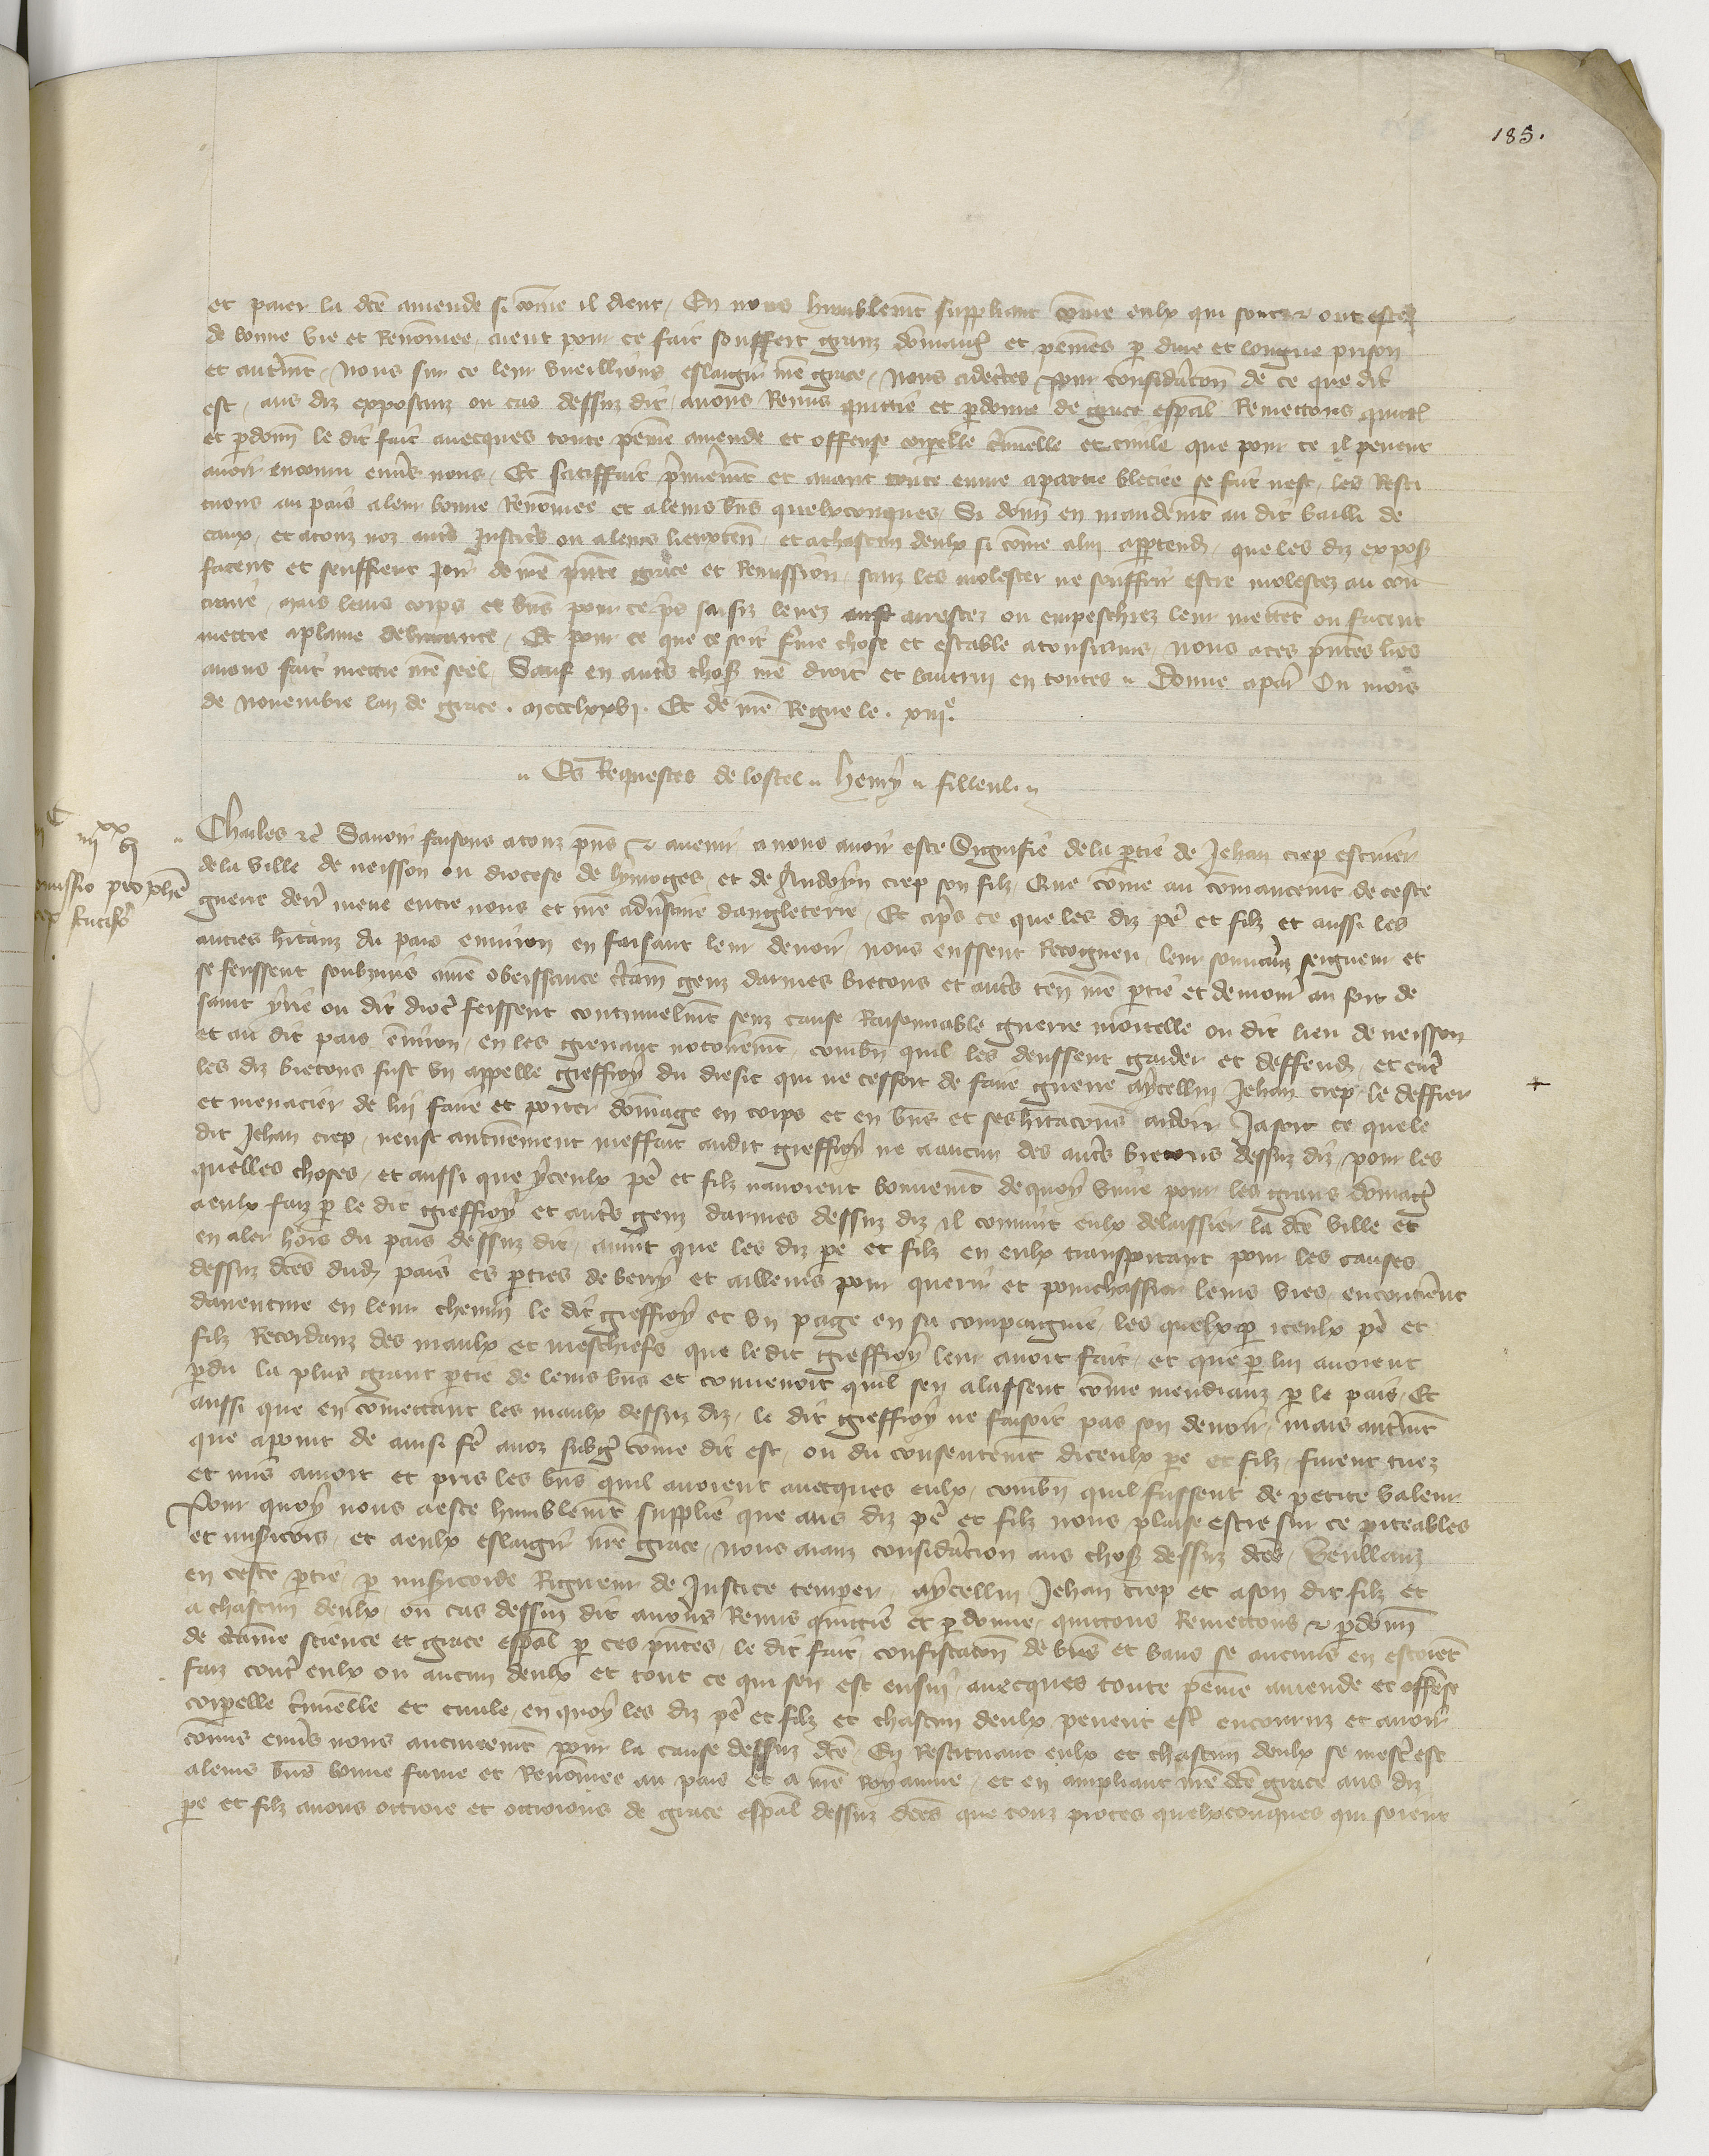 185.
et paier la dcē amende si cōme il dient / En nous humblemēt suppliant cōme eulx qui sont & ont esté
de bonne vie et Renōmee aient pour ce fait souffert granz dōmaǵ et peines p dure et longue prison
et autrēmt / nous sur ce leur vueillions eslargir nrē grace / nous adectes pour considāciōn de ce que dit
est / aus diz exposanz ou cas dessuz dit avons Remis quittie et pdonne de grace espāl Remettons quitt
et pdonn le dit fait avecques toute peine amende et offense corpelle cīminelle et civile que pour ce il peuent
avoir encouru envs nous / Et satiffait p̄mierēmt et avant toute euvre a partie bleciee se fait nest / les Resti
tuons au pais a leur bonne Renōmee et a leurs bn̄s quelxconques / Si donn en mandemēt au dit bailli de
caux / et a touz noz autrs Justiciers ou a leurs lieuxten̄ / et a chascun deulx si cōme a lui apptendra / que les diz expos
facent et seuffrent joir de nrē pn̄te grace et Remission / sanz les molester ne souffrir estre molestez au con
traire / mais leurs corps et bn̄s pour ce p̄s saisiz levez arrestez ou empeschiez leur mettēt ou facent
mettre a plaine delivrance / Et pour ce que ce soit ferme chose et estable a tousiours / nous a ces pn̄tes lrēs
avons fait mettre nrē seel / Sauf en autrs choses nrē droit et lautrui en toutes // Donne a paris Ou mois
de novembre lan de grace . mccclxxvj . Et de nrē Regne le . xiije.
// Es Requestes de lostel // henry // filleul . //
iiijxx vj
missio pro Johē
Charles &c̄ Savoir faisons a touz pn̄s & avenir a nous avoir este Signifie de la ptie de Jehan crep escuier
de la ville de neisson ou diocese de lymoges et de Audoyn crep son filz / Que cōme au cōmancemt de ceste
guerre derr̄ meue entre nous et nrē adversaire dangleterre / Et ap̄s ce que les diz pē et filz et aussi les
autres hītanz du pais environ en faisant leur devoir nous eussent Recogneu leur souverain seigneur et
se feussent soubzmis a nrē obeissance cītain̄ genz darmes bretons et autrs ten̄ nrē ptie et demour̄ au fort de
saint yrie ou dit dioc̄ feissent continuelmt senz cause Raisonnable guerre mortelle ou dit lieu de neisson
et au dit pais environ / en les grevant notoiremt / combn̄ quil les deussent garder et deffendr̄ / et entr̄
les diz bretons fust un appelle gieffroy du diesic qui ne cessoit de faire guerre aycellui Jehan crep le deffier
et menacier de lui faire et porter dōmage en corps et en bn̄s et ses hītacions ardoir Jasoit ce que le
dit Jehan crep neust aucunement meffait audit gieffroy ne a aucun des autrs bretons dessuz diz / pour les
quelles choses / et aussi que yceulx pē et filz navoient bonnemt de quoy vivre pour les grans dōmages
a eulx faiz p le dit gieffroy et autrs genz darmes dessuz diz il convint eulx delaissier la dcē ville et
en aler hors du pais dessuz dit / avint que les diz pē et filz en eulx transportant pour les causes
dessuz dcēs dudit pais es pties de berry et ailleurs pour querir et pourchassier leurs vies encontrerēt
daventure en leur chemin le dit gieffroy et un page en sa compaignie / les quelx p iceulx pē et
filz Recordanz des maulx et meschiefs que ledit gieffroy leur avoit fait / et que p lui avoient
pdu la plus grant ptie de leurs bn̄s et convenoit quil sen alassent cōme mendianz p le pais / Et
aussi que en cōmettant les maulx dessuz diz / le dit gieffroy ne faisoit pas son devoir / mais autrēmt
que apoint de ainsi fē a noz subgez cōme dit est / ou du consentemt diceulx pē et filz furent tuez
et mis a mort et pris les bn̄s quil avoient avecques eulx / combn̄ quil fussent de petite valeur
Pour quoy nous a este humblemt supplie que aus diz pē et filz nous plaise estre sur ce piteables
et misicors / et a eulx eslargir nrē grace / nous aianz considācion aus choses dessuz dcēs / Veullanz
en ceste ptie / p misericorde Rigueur de Justice temperer / aycellui Jehan crep et a son dit filz et
a chascun deulx / ou cas dessuz dit avons Remis quittie et pdonne / quittons Remettons & pdonn
de certaine science et grace espāl p ces pn̄tes / le dit fait / confiscacōn de bn̄s et bans se aucuns en estoiēt
faiz contr̄ eulx ou aucun deulx et tout ce qui sen est ensuy avecques toute peine amende et offense
corpelle cīminelle et civile / en quoy les diz pē et filz et chascun deulx peuent estr̄ encouruz et avoir
cōmis envs nous aucunemt / pour la cause dessuz dcē / En Restituant eulx et chascun deulx se mestr̄ est
a leurs bn̄s bonne fame et Renōmee au pais et a nrē Royaume / et en ampliant nrē dcē grace aus diz
pē et filz avons ottroie et ottroions de grace espāl dessuz dcēs que touz proces quelxconques qui soient